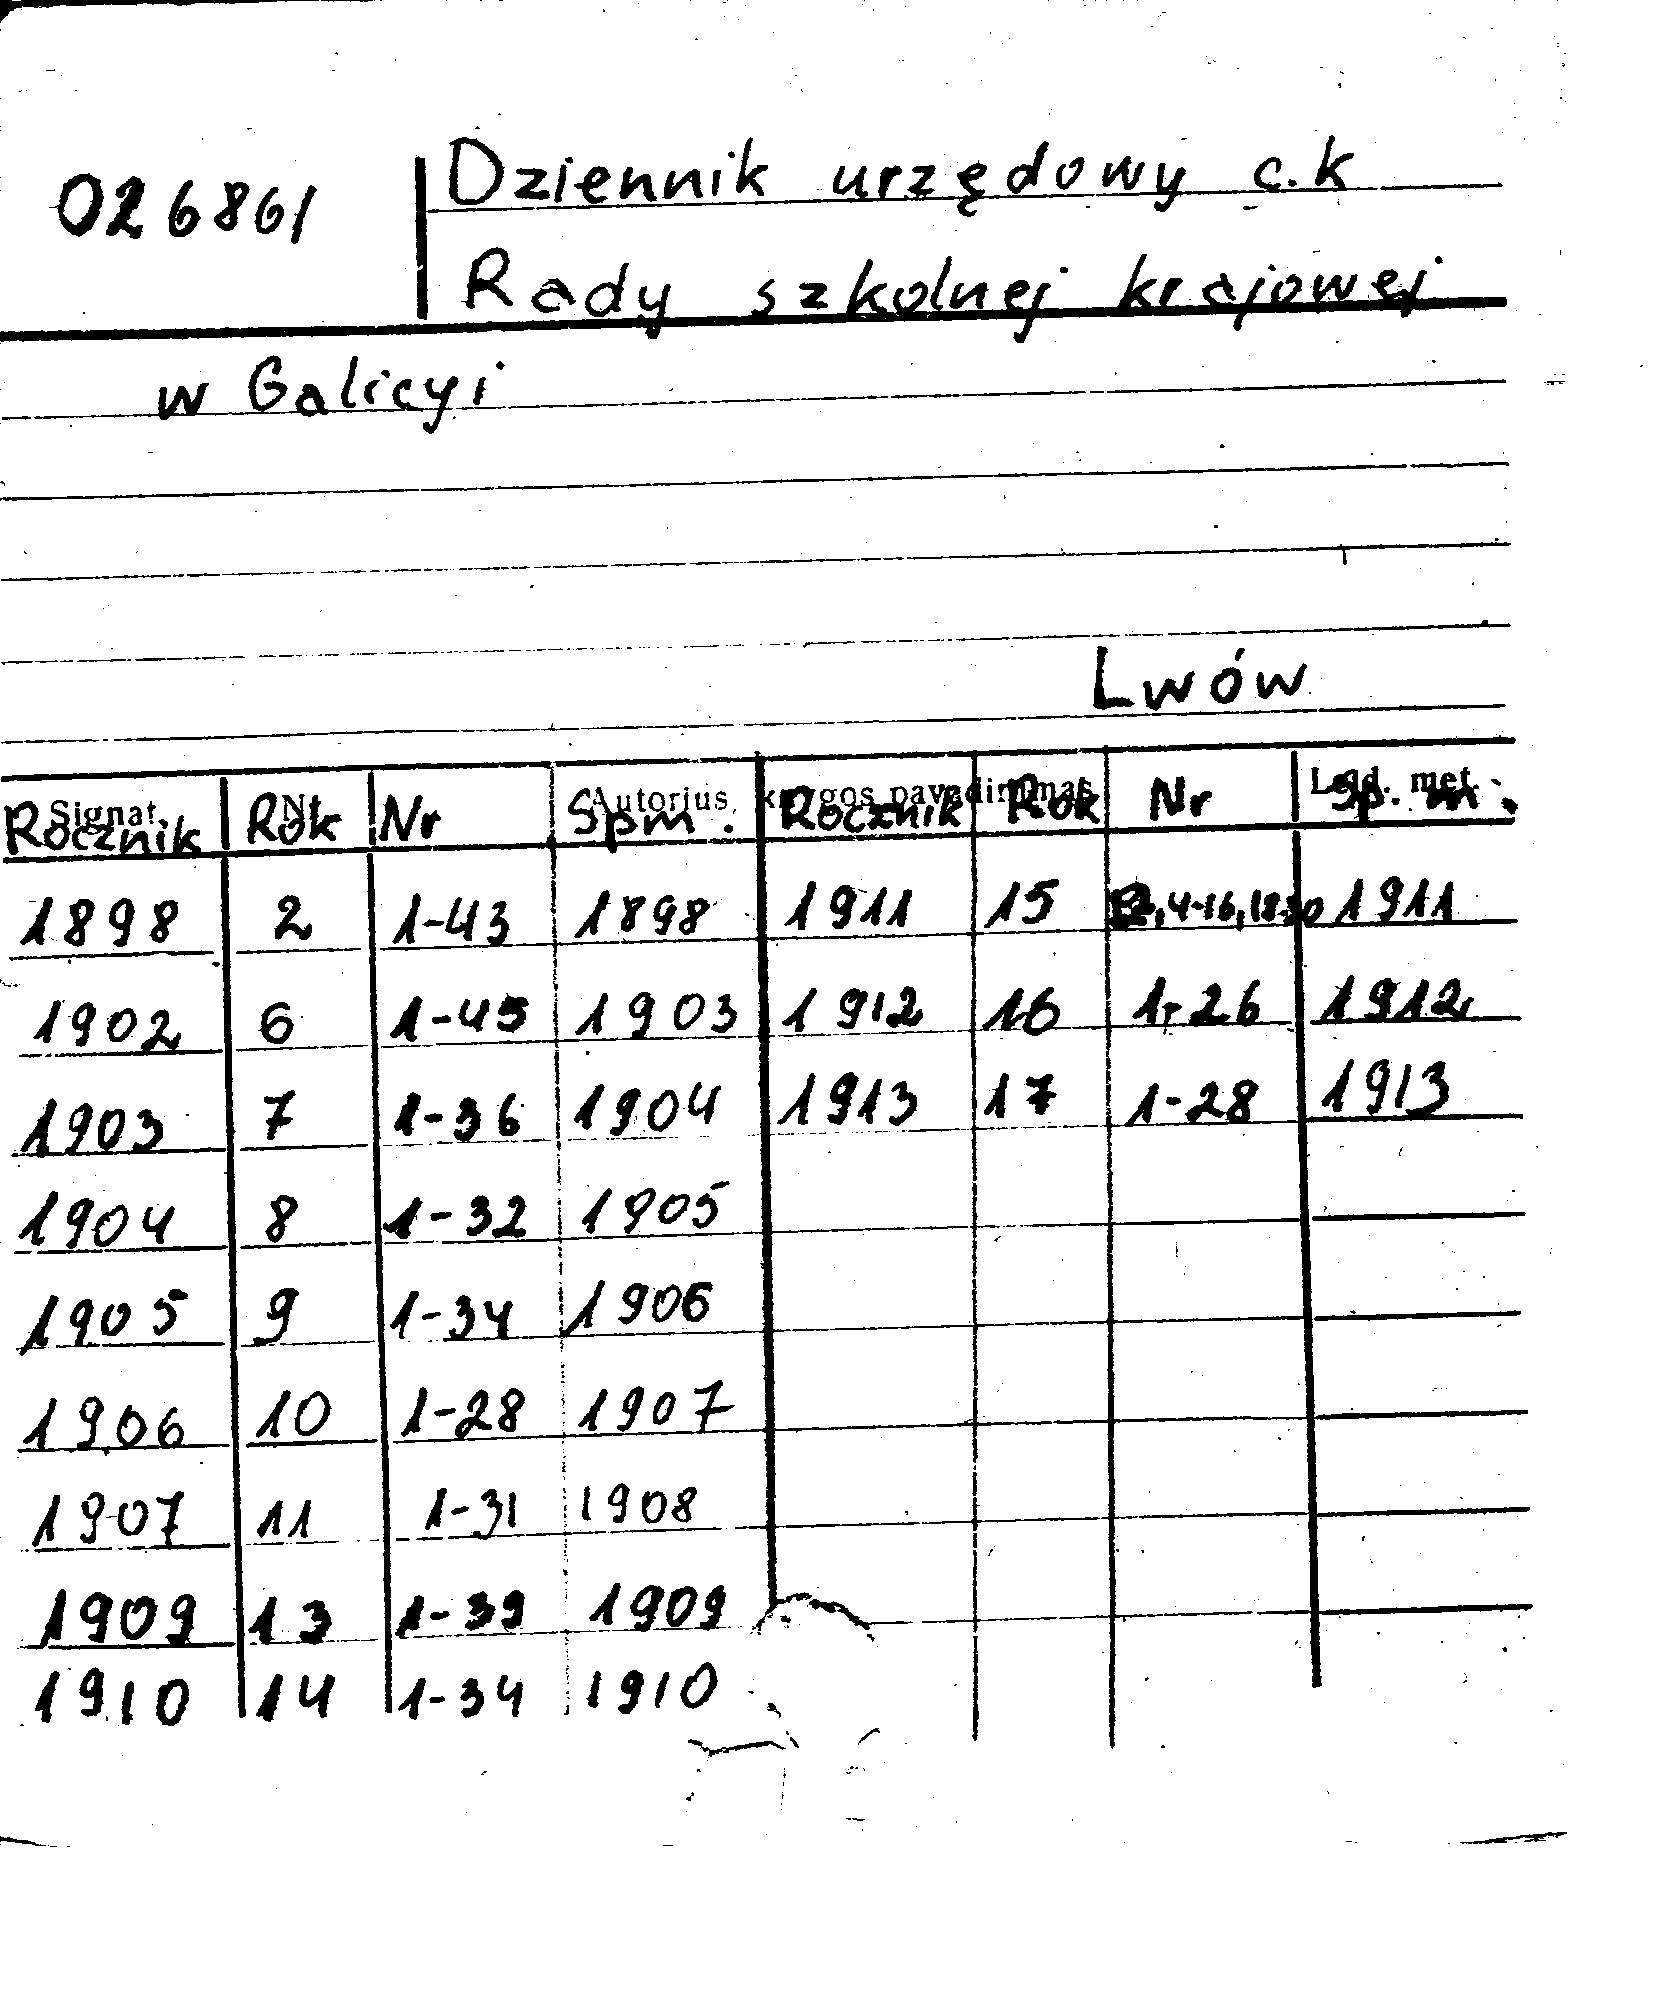 026861
Dziennik urzędowy c.k
Rady szkolnej krajowej
w Galicyi
Lwów
Signat. Nr. Autorius, knygos pavadinimas Leid. met.
Rocznik Rok Nr Spm. Rocznik Rok Nr Sp. m.
1898 2 1-43 1898 1911 15 2,4-16,18-30 1911
1902 6 1-45 1903 1912 16 1-26 1912
1903 7 1-36 1904 1913 17 1-28 1913
1904 8 1-32 1905
1905 9 1-34 1906
1906 10 1-28 1907
1907 11 1-31 1908
1909 13 1-39 1909
1910 14 1-34 1910